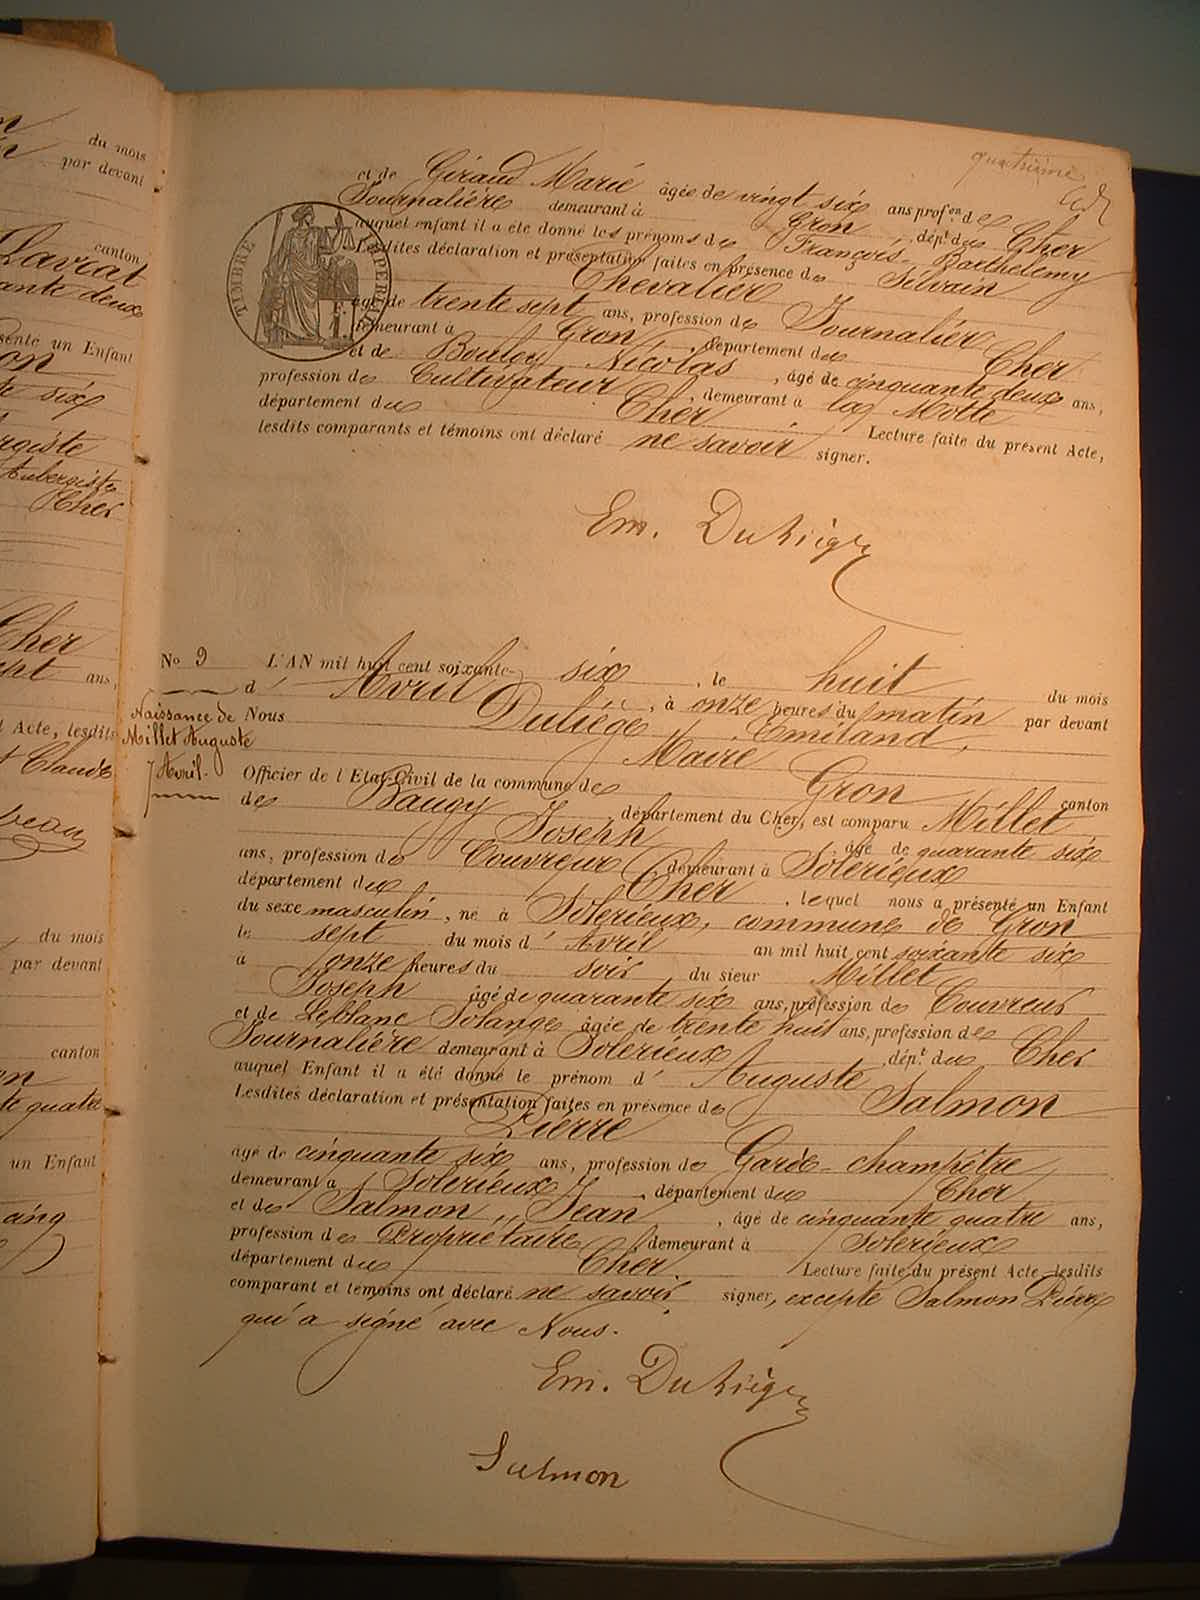 quatrième
et de Giraud Marie âgée de vingt six ans prof.on de
Journalière demeurant à Gron, dép.t du Cher
auquel enfant il a été donné les prénoms de François-Barthélemy
Lesdites déclaration et présentation faites en présence de Silvain
Chevalier
âgé de trente sept ans, profession de Journalier
demeurant à Gron, département du Cher
et de Boulay Nicolas, âgé de cinquante deux ans,
profession de Cultivateur, demeurant à la Motte
département du Cher. Lecture faite du présent Acte,
lesdits comparants et témoins ont déclaré ne savoir signer.
TIMBRE IMPERIAL
Em. Duliège
No 9 L'AN mil huit cent soixante-six, le huit du mois
d'Avril, à onze heures du matin par devant
Nous Duliège, Emiland,
Maire
Naissance de
Millet Auguste
7 Avril.
Officier de l'Etat-Civil de la commune de Gron canton
de Baugy, département du Cher, est comparu Millet
Joseph, âgé de quarante six
ans, profession de Couvreur, demeurant à Solerieux
département du Cher, lequel nous a présenté un Enfant
du sexe masculin, né à Solerieux, commune de Gron
le sept du mois d'Avril an mil huit cent soixante six
à onze heures du soir, du sieur Millet
Joseph âgé de quarante six ans, profession de Couvreur
et de Leblanc Solange âgée de trente huit ans, profession de
Journalière demeurant à Solerieux, dép.t du Cher
auquel Enfant il a été donné le prénom d'Auguste
Lesdites déclaration et présentation faites en présence de Salmon
Pierre
âgé de cinquante six ans, profession de Garde-champêtre
demeurant à Solerieux, département du Cher
et de Salmon, Jean, âgé de cinquante quatre ans,
profession de Propriétaire, demeurant à Solerieux
département du Cher. Lecture faite du présent Acte lesdits
comparant et témoins ont déclaré ne savoir signer, excepté Salmon Pierre
qui a signé avec Nous.
Em. Duliège
Salmon
du mois
par devant
canton
Lavrat
ante deux
senté un Enfant
te six
Aubergiste
Cher
Cher
ans,
t Acte, lesdits
Claude
du mois
par devant
canton
te quatre
un Enfant
cinq